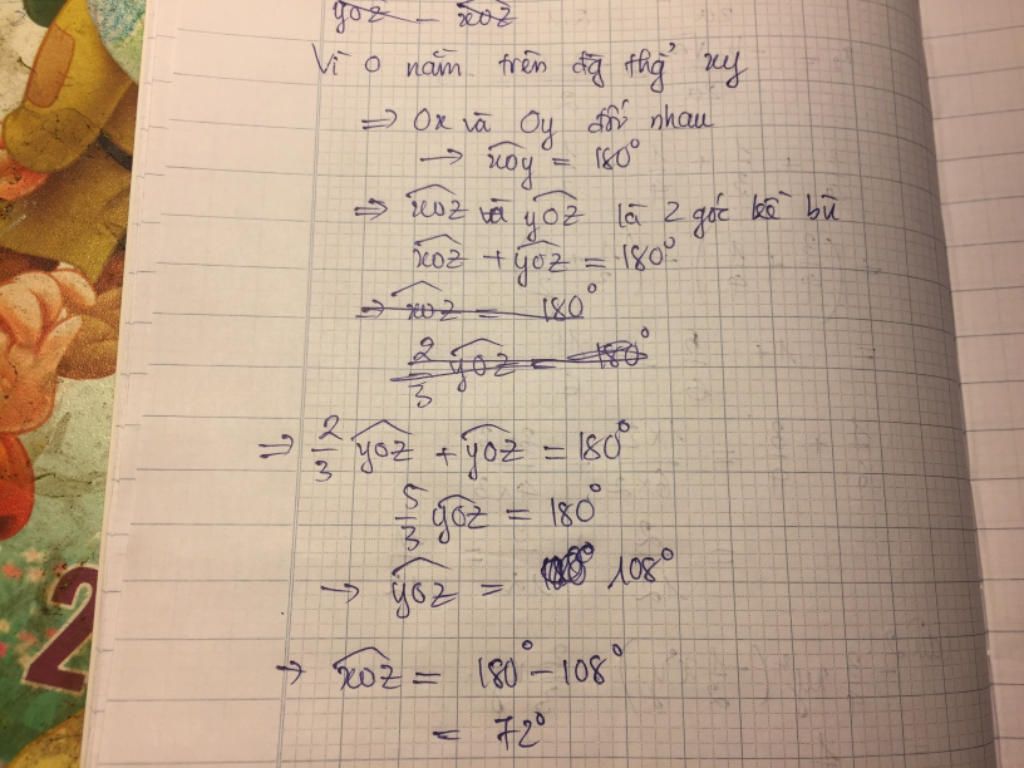 yOz - xOz
Vì O nằm trên đg thg xy
⇒ Ox và Oy đối nhau
→ xOy = 180°
⇒ xOz và yOz là 2 góc kề bù
xOz + yOz = 180°
→ xOz = 180°
2/3 yOz = 180°
⇒ 2/3 yOz + yOz = 180°
5/3 yOz = 180°
→ yOz = 108°
→ xOz = 180° - 108°
= 72°
2